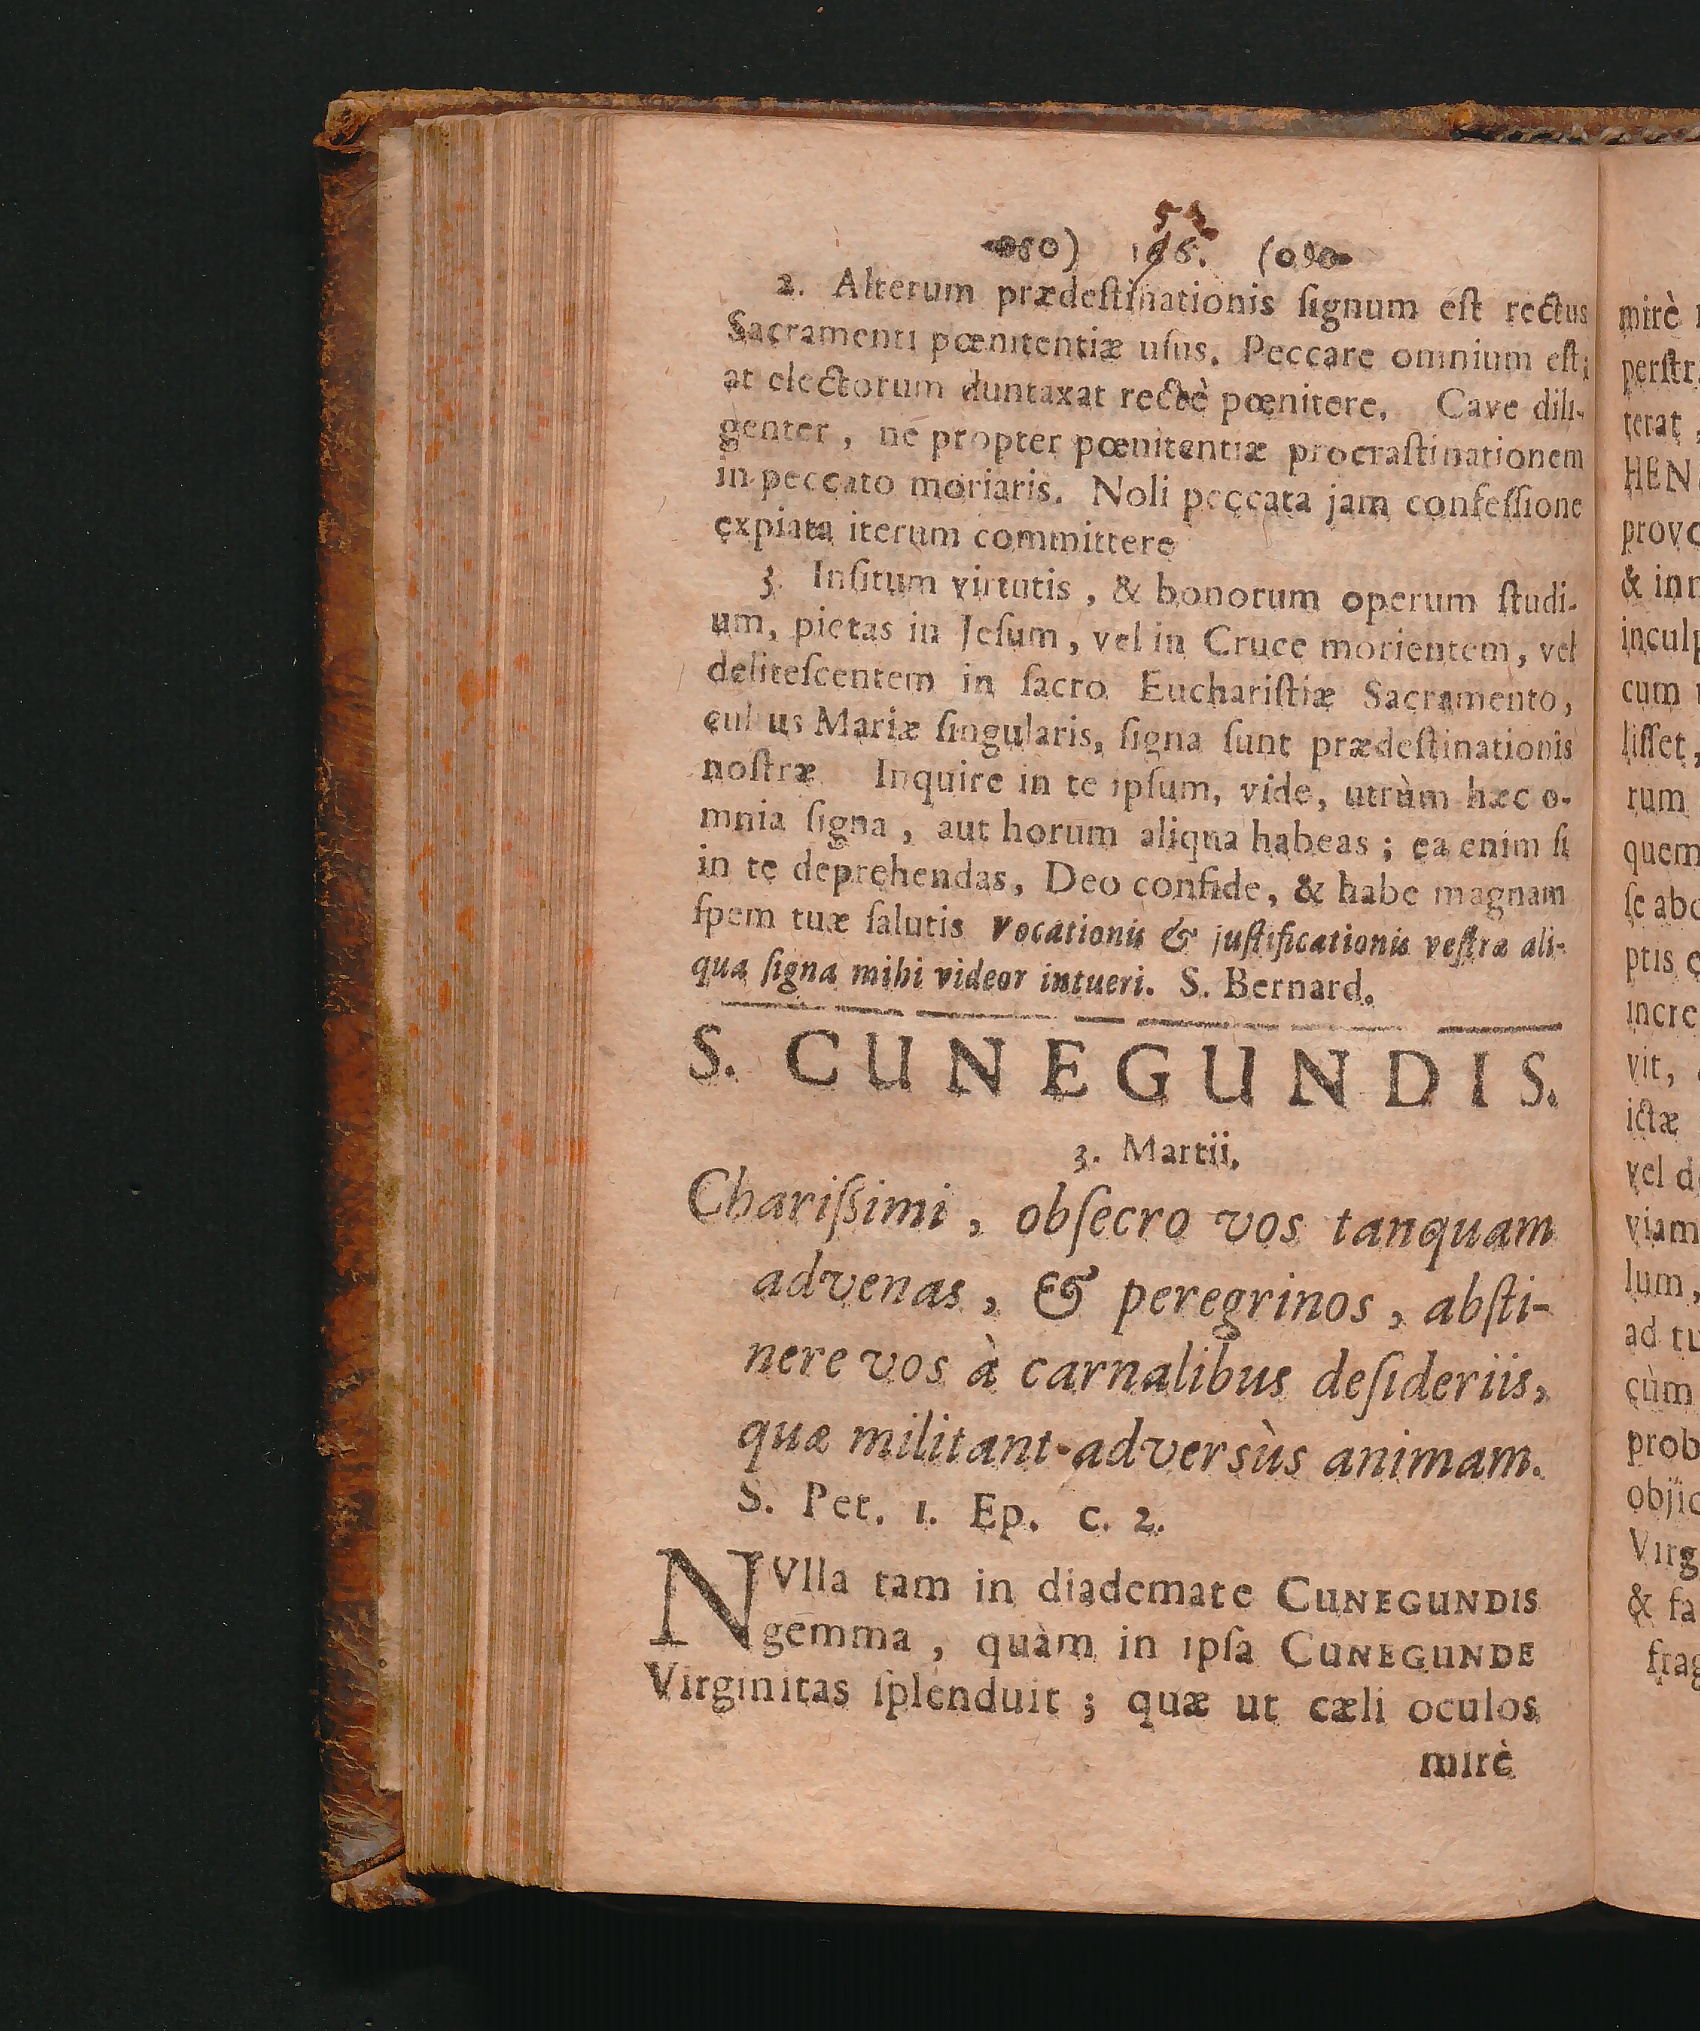 52
o§o) 166. (o§o
2. Alterum prædeſtinationis ſignum eſt rectus
Sacramenti pœnitentiæ uſus. Peccare omnium eſt;
at electorum duntaxat rectè pœnitere. Cave dili-
genter, nè propter pœnitentiæ procraſtinationem
in peccato moriaris. Noli peccata jam confeſſione
expiata iterum committere
3. Inſitum virtutis, & bonorum operum ſtudi-
um, pietas in Jeſum, vel in Cruce morientem, vel
deliteſcentem in ſacro Euchariſtiæ Sacramento,
cul us Mariæ ſingularis, ſigna ſunt prædeſtinationis
noſtræ Inquire in te ipſum, vide, utrùm hæc o-
mnia ſigna, aut horum aliqua habeas; ea enim ſi
in te deprehendas, Deo confide, & habe magnam
ſpem tuæ ſalutis Vocationis & juſtificationis veſtræ ali-
qua ſigna mihi videor intueri. S. Bernard.
S. CUNEGUNDIS.
3. Martii.
Chariſſimi, obſecro vos tanquam
advenas, & peregrinos, abſti-
nere vos à carnalibus deſideriis,
quæ militant adversùs animam.
S. Pet. 1. Ep. c. 2.
NVlla tam in diademate CUNEGUNDIS
gemma, quàm in ipſa CUNEGUNDE
Virginitas ſplenduit; quæ ut cæli oculos
mirè
mirè
perſtr
terat,
HEN
provo
& inn
inculp
cum
liſſet,
rum
quem
ſe abo
ptis
incre
vit,
ictæ
vel d
viam
lum,
ad tu
cùm
prob
objic
Virg
& fa
frag